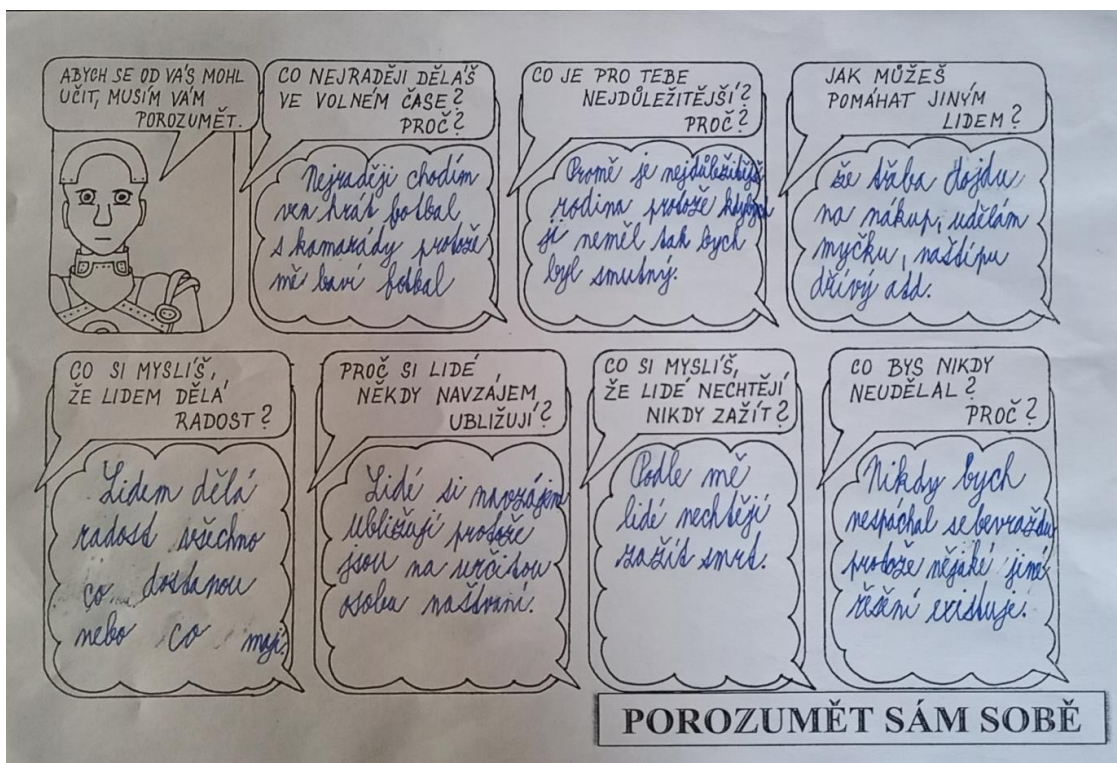 ABYCH SE OD VÁS MOHL
UČIT, MUSÍM VÁM
POROZUMĚT.
CO NEJRADĚJI DĚLÁŠ
VE VOLNÉM ČASE?
PROČ?
Nejraději chodím
ven hrát fotbal
s kamarády protože
mě baví fotbal
CO JE PRO TEBE
NEJDŮLEŽITĚJŠÍ?
PROČ?
Promě je nejdůležitější
rodina protože kdybych
ji neměl tak bych
byl smutný.
JAK MŮŽEŠ
POMÁHAT JINÝM
LIDEM?
že třaba dojdu
na nákup, udělám
myčku, naštípu
dřívý atd.
CO SI MYSLÍŠ,
ŽE LIDEM DĚLÁ
RADOST?
Lidem dělá
radost všechno
co dostanou
nebo co mají.
PROČ SI LIDÉ
NĚKDY NAVZÁJEM
UBLIŽUJÍ?
Lidé si navzájem
ubližují protože
jsou na určitou
osobu naštvaní.
CO SI MYSLÍŠ,
ŽE LIDÉ NECHTĚJÍ
NIKDY ZAŽÍT?
Podle mě
lidé nechtějí
zažít smrt.
CO BYS NIKDY
NEUDĚLAL?
PROČ?
Nikdy bych
nespáchal sebevraždu
protože nějaké jiné
řešení existuje.
POROZUMĚT SÁM SOBĚ